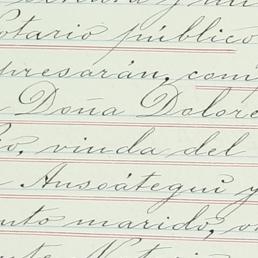 Notario público
presarán, com
Doña Dolore
io, viuda del
Ansoátegui y
unto marido, o